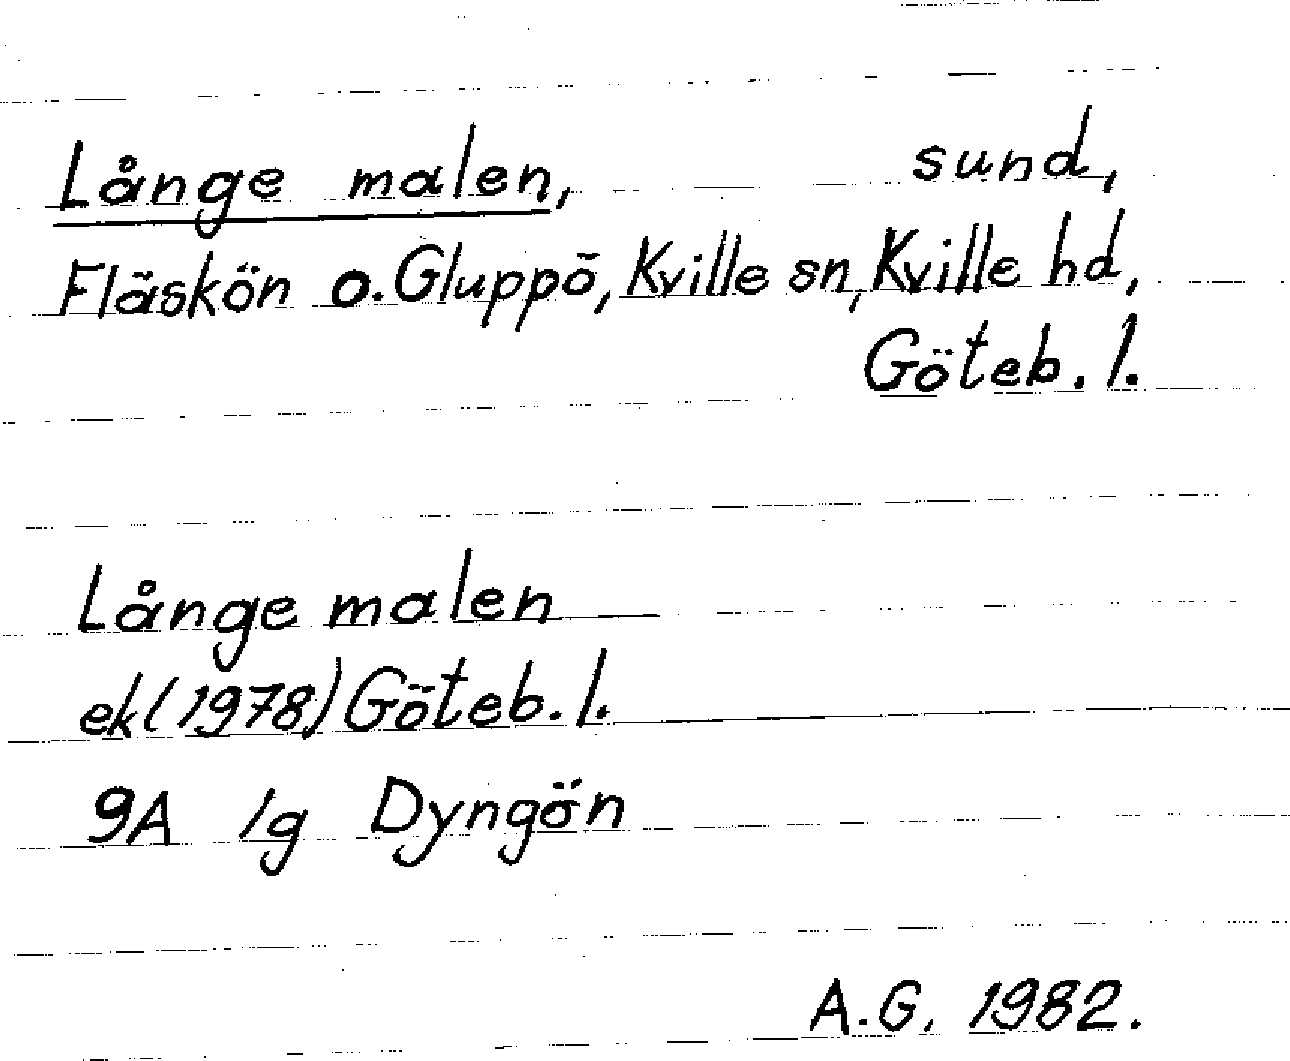 Långe malen, sund,
Fläskön o. Gluppö, Kville sn, Kville hd,
Göteb. l.
Långe malen
ek (1978) Göteb. l.
9A 1g Dyngön
A.G. 1982.